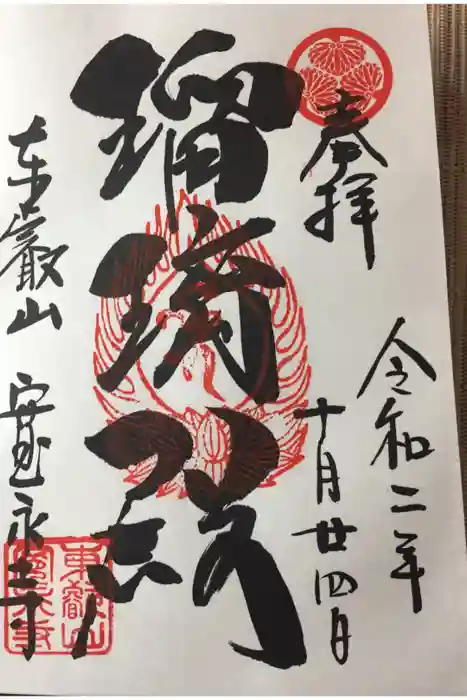 奉拝
令和二年
十月廿四日
瑠璃殿
東叡山 寛永寺
東叡山
寛永寺